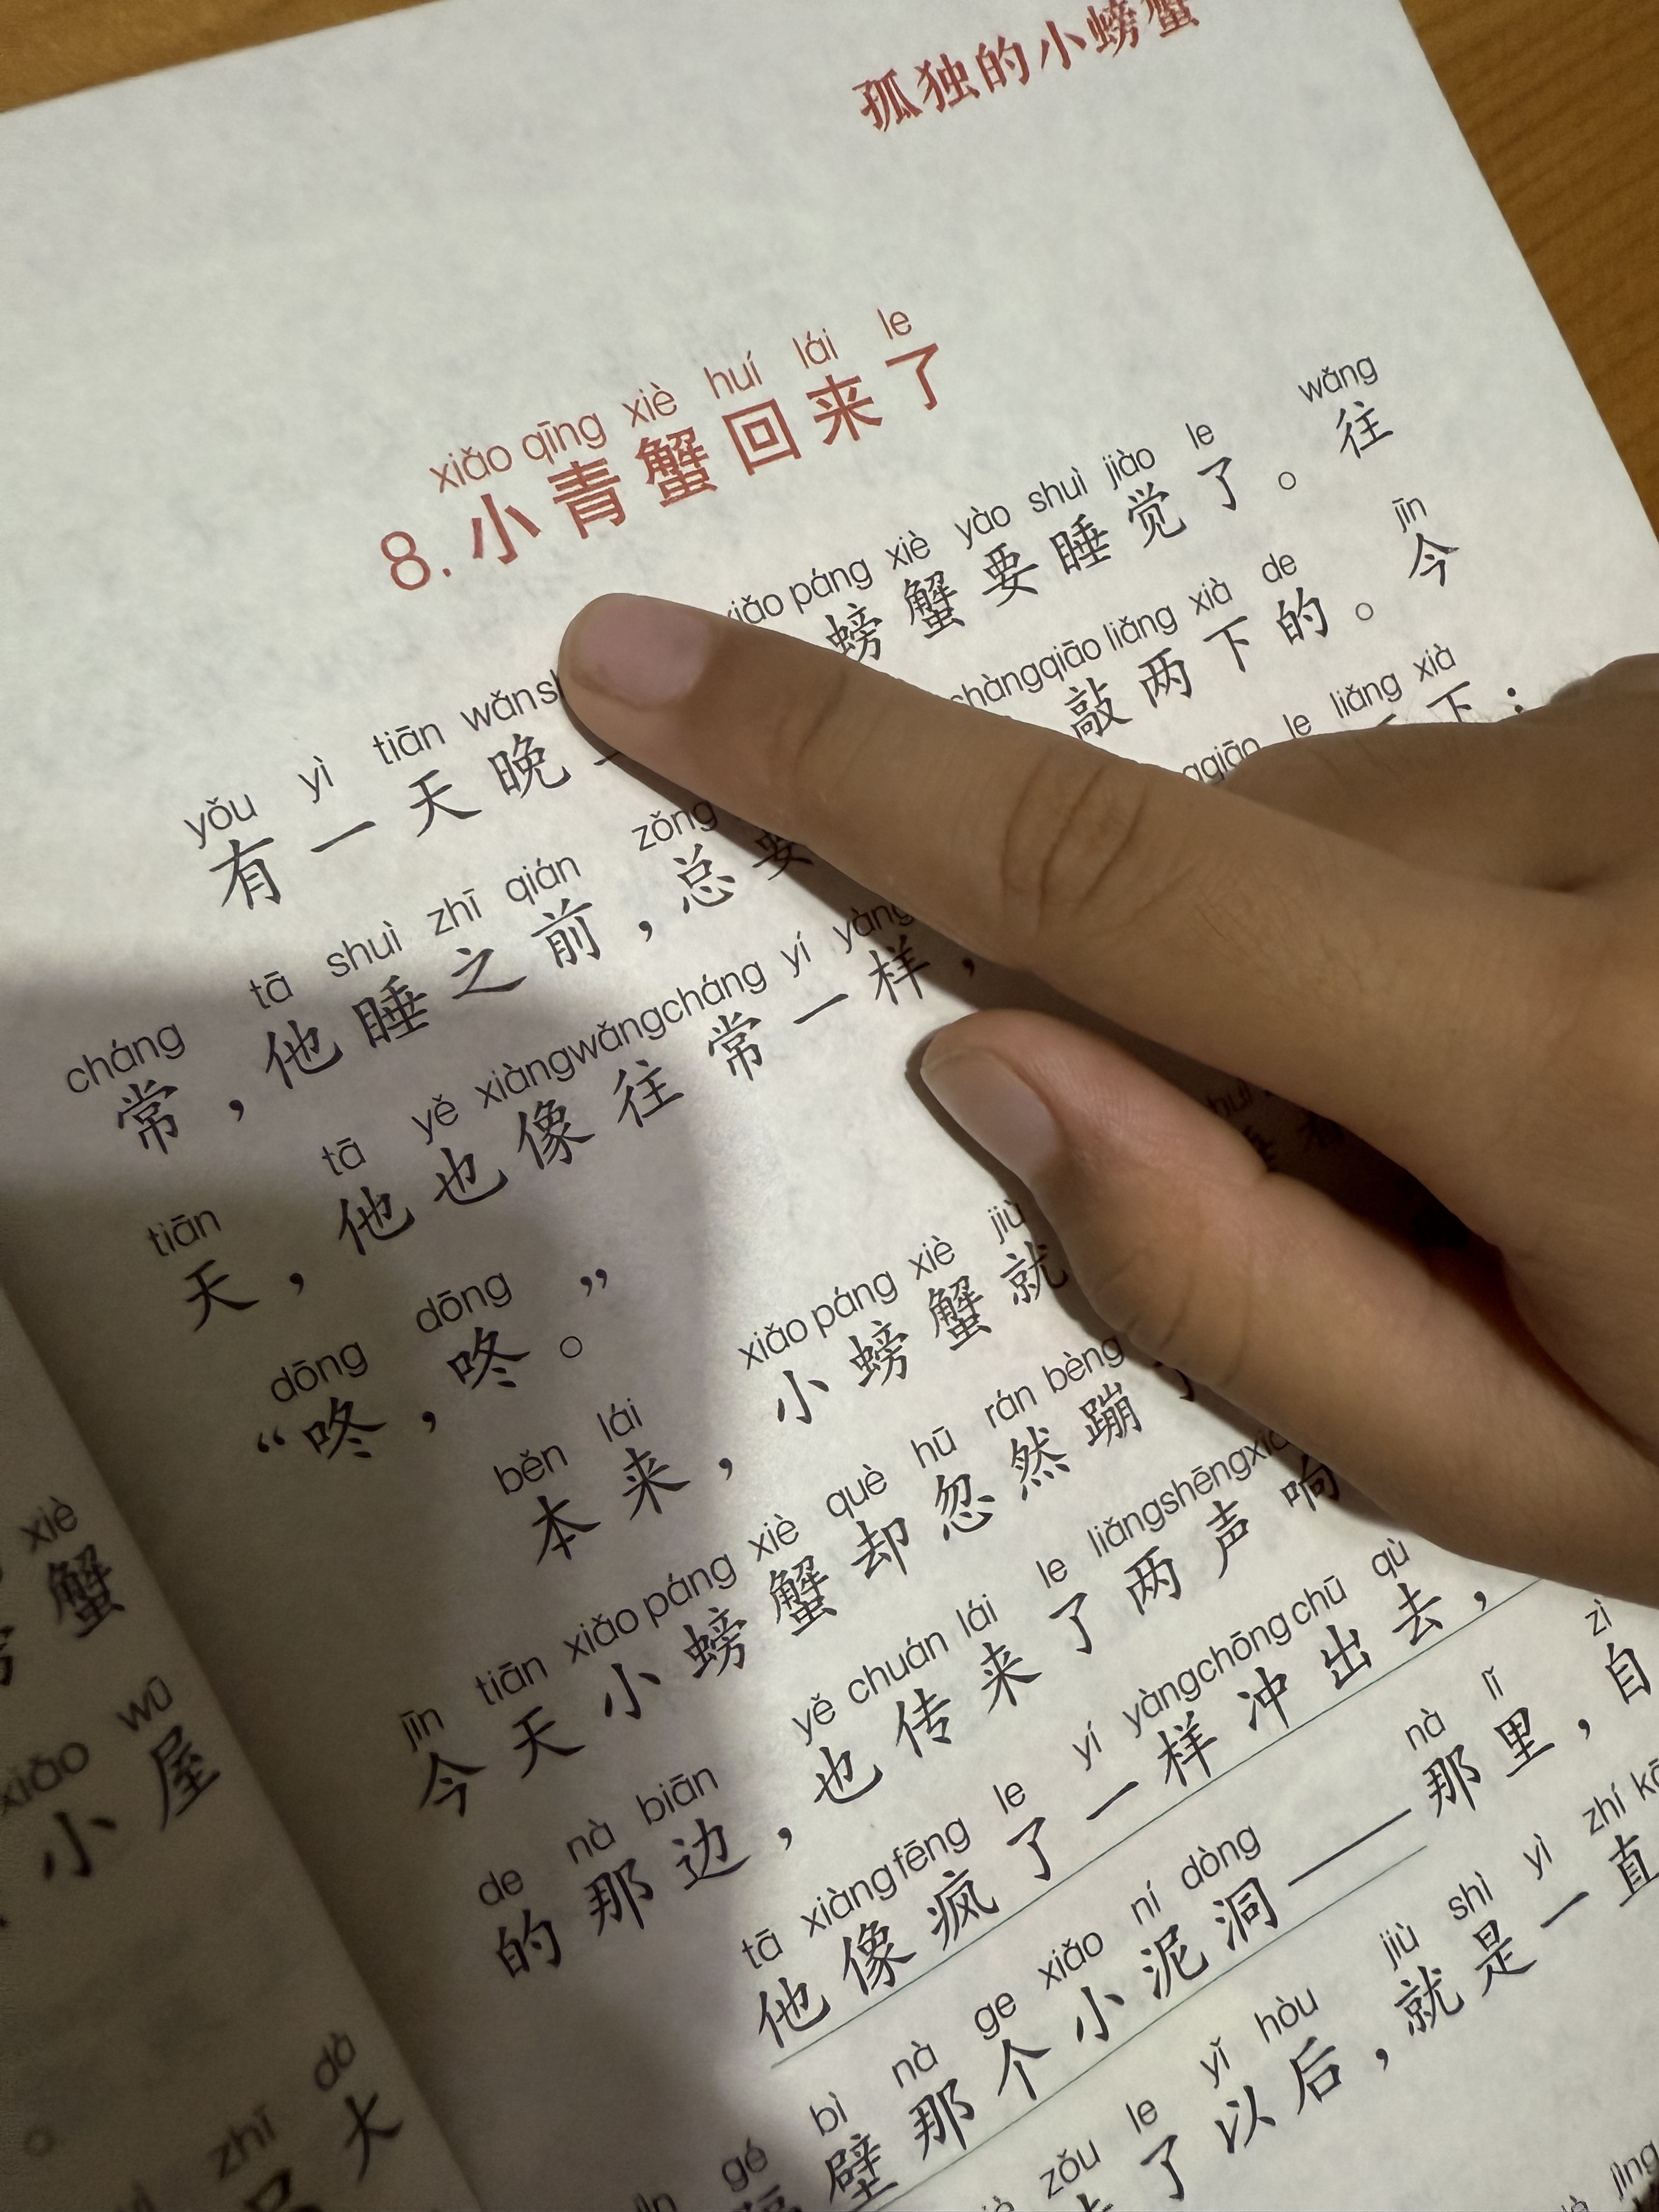 孤独的小螃蟹
xiǎo qīng xiè huí lái le
8. 小青蟹回来了
yǒu yì tiān wǎn xiǎo páng xiè yào shuì jiào le wǎng
有一天晚 螃蟹要睡觉了。往
cháng tā shuì zhī qián zǒng qiāo liǎng xià de jīn
常，他睡之前，总要 敲两下的。今
tiān tā yě xiàng wǎng cháng yí yàng le liǎng xià
天，他也像往常一样， 下：
dōng dōng
“咚，咚。”
běn lái xiǎo páng xiè jiù
本来，小螃蟹就
jīn tiān xiǎo páng xiè què hū rán bèng
今天小螃蟹却忽然蹦
de nà biān yě chuán lái le liǎng shēng
的那边，也传来了两声响
tā xiàng fēng le yí yàng chōng chū qù
他像疯了一样冲出去，
gé bì nà ge xiǎo ní dòng nà lǐ zì
壁那个小泥洞——那里，自
zǒu le yǐ hòu jiù shì yì zhí
了以后，就是一直
xiè
蟹
xiǎo wū
小屋
zhī dà
大